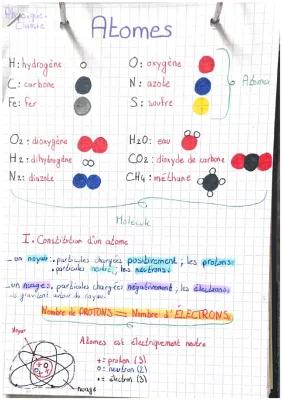 Physique-
Chimie
Atomes
H: hydrogène
O: oxygène
C: carbone
N: azote
Atomes
Fe: fer
S: soufre
O2: dioxygène
H2O: eau
H2: dihydrogène
CO2: dioxyde de carbone
N2: diazote
CH4: méthane
Molécule
I. Constitution d'un atome
_ un noyau: particules chargées positivement; les protons.
• particules neutre; les neutrons.
_ un nuages, particules chargées négativement, les électrons,
ils gravitent autour du noyau.
Nombre de PROTONS = Nombre d'ÉLECTRONS
Noyau
Atomes est électriquement neutre
+: proton (3)
o: neutron (2)
-: électron (3)
nuage